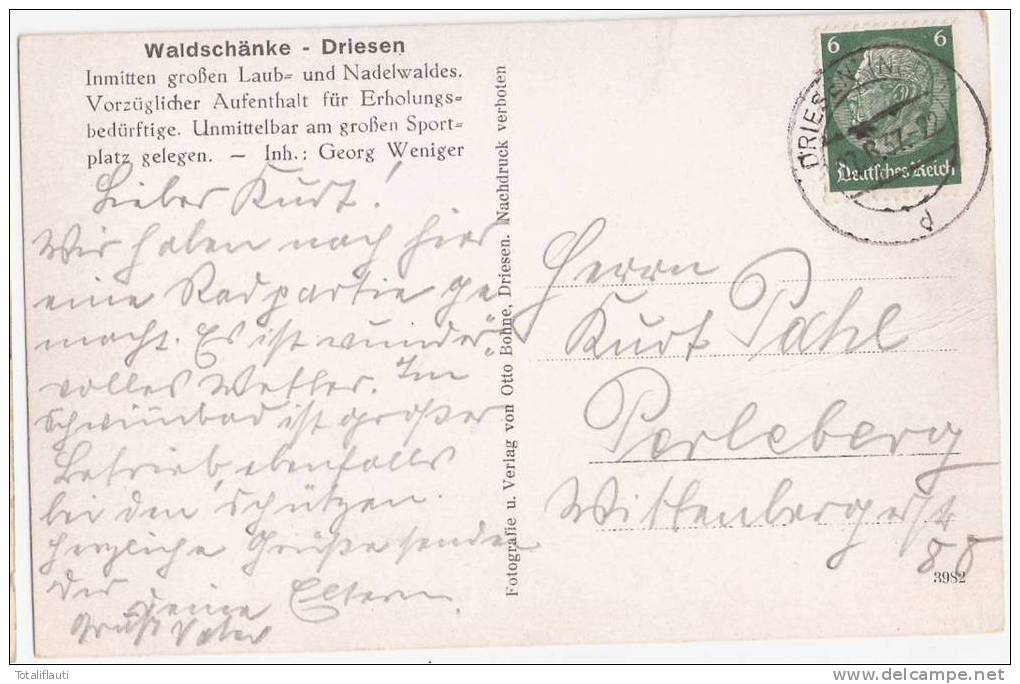 Waldschänke - Driesen
Inmitten großen Laub= und Nadelwaldes.
Vorzüglicher Aufenthalt für Erholungs=
bedürftige. Unmittelbar am großen Sport=
platz gelegen. — Inh.: Georg Weniger
Lieber Kurt!
Wir haben noch hier
eine Radpartie ge
macht. Es ist wunder„
volles Wetter. Im
Schwimbad ist großer
Betrieb, ebenfalls
bei den Schützen.
Herzliche Grüße senden
Dir deine Eltern.
Gruß Vater
Fotografie u. Verlag von Otto Bohne, Driesen. Nachdruck verboten
6 6
Deutsches Reich
DRIESEN
d
Herrn
Kurt Pahl
Perleberg
Wittenbergerstr
88
3982
Totaliflauti
www.delcampe.net